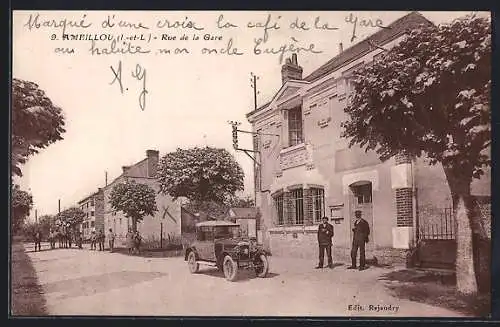 Marqué d'une croix la café de la gare
9. AMBILLOU (I.-et-L.) - Rue de la Gare
ou habite mon oncle Eugène
X